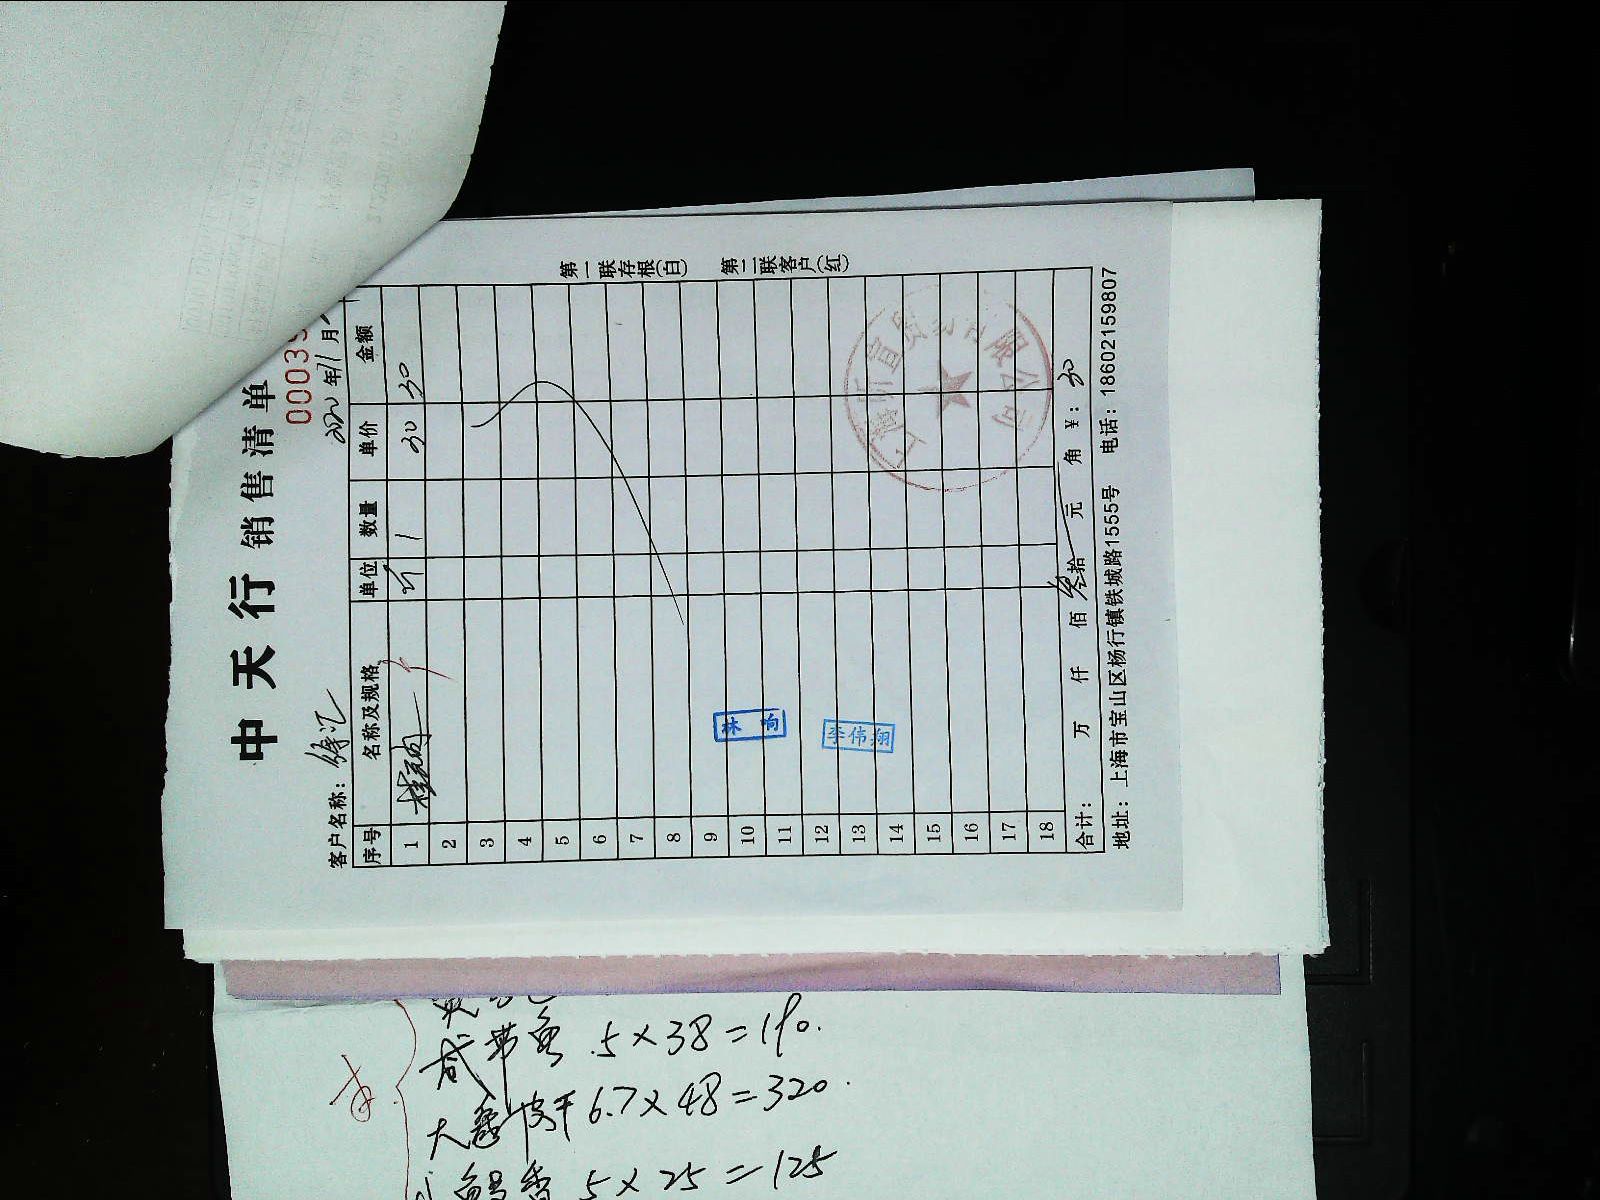 中天行销售清单
00039
客户名称：徐汇 2020年11月
序号 名称及规格 单位 数量 单价 金额
1 桂圆肉 斤 1 30 30
2
3
4
5
6
7
8
9
10
11
12
13
14
15
16
17
18
合计： 万 仟 佰 叁拾 元 角 ¥：30
地址：上海市宝山区杨行镇铁城路1555号 电话：18602159807
第一联存根(白) 第二联客户(红)
林 响
李伟翔
咸带鱼 5×38=190.
6.7×48=320.
5×25=125